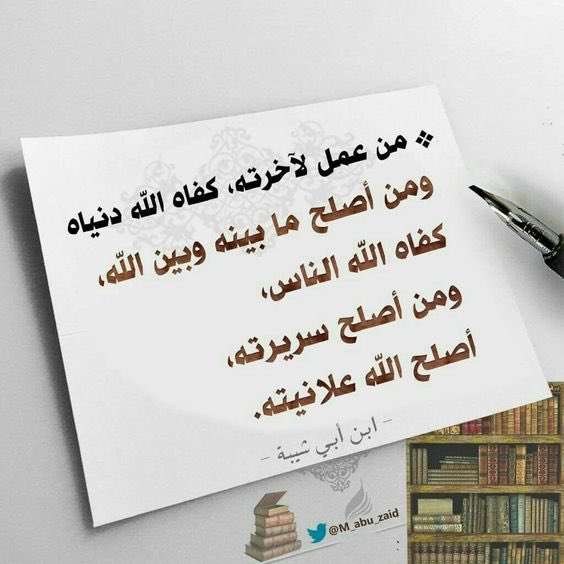 ❖ من عمل لآخرته، كفاه الله دنياه
ومن أصلح ما بينه وبين الله،
كفاه الله الناس،
ومن أصلح سريرته،
أصلح الله علانيته.
- ابن أبي شيبة -
@M_abu_zaid